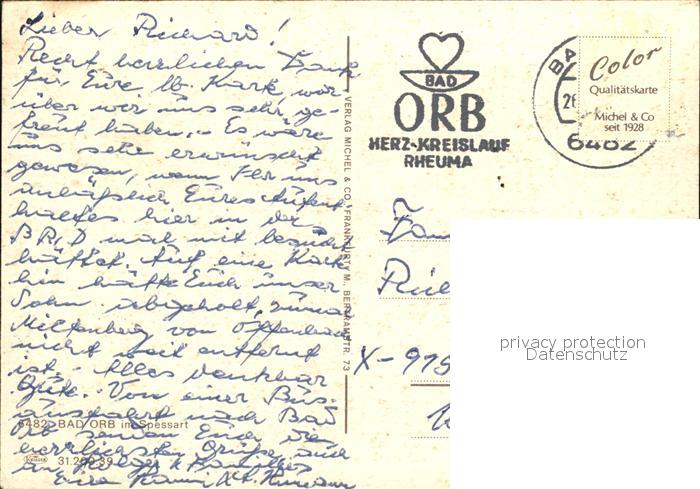 Lieber Richard!
Recht herzlichen Dank
für Eure lb. Karte, wor
über wir uns sehr ge-
freut haben. - Es wäre
uns sehr erwünscht
gewesen, wenn Ihr uns
anläßlich Eures Aufent
haltes hier in der
BRD mal mit besucht
hättet. Auf eine Karte
hin hätte Euch unser
Sohn abgeholt, zumal
Miltenberg von Offenbach
nicht weit entfernt
ist. - Alles denkbar
Gute. - Von einer Bus-
ausfahrt nach Bad
Orb senden Euch die
herrlichsten Grüße, auch
an
Eure
6482 BAD ORB im Spessart
Krüger
VERLAG MICHEL & CO., FRANKFURT/M., BERTRAMSTR. 73
BAD
ORB
HERZ-KREISLAUF
RHEUMA
BA
26
6482
Color
Qualitätskarte
Michel & Co
seit 1928
Fam
X-975
privacy protection
Datenschutz